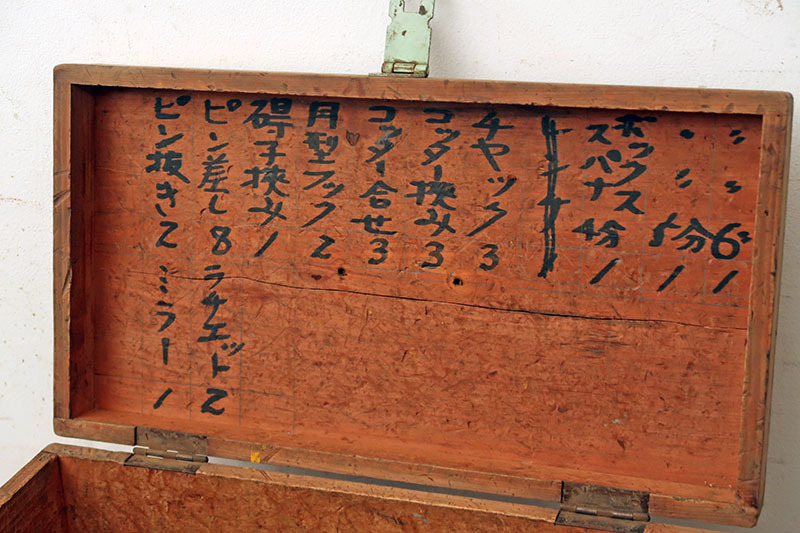 〃 〃 6〃 1
〃 〃 5分 1
ボックス
スパナ 4分 1
チヤック 3
コッター挟み 3
コッター合せ 3
月型フック 2
碍子挟み 1
ピン差し 8 ラチエット 2
ピン抜き 2 ミラー 1